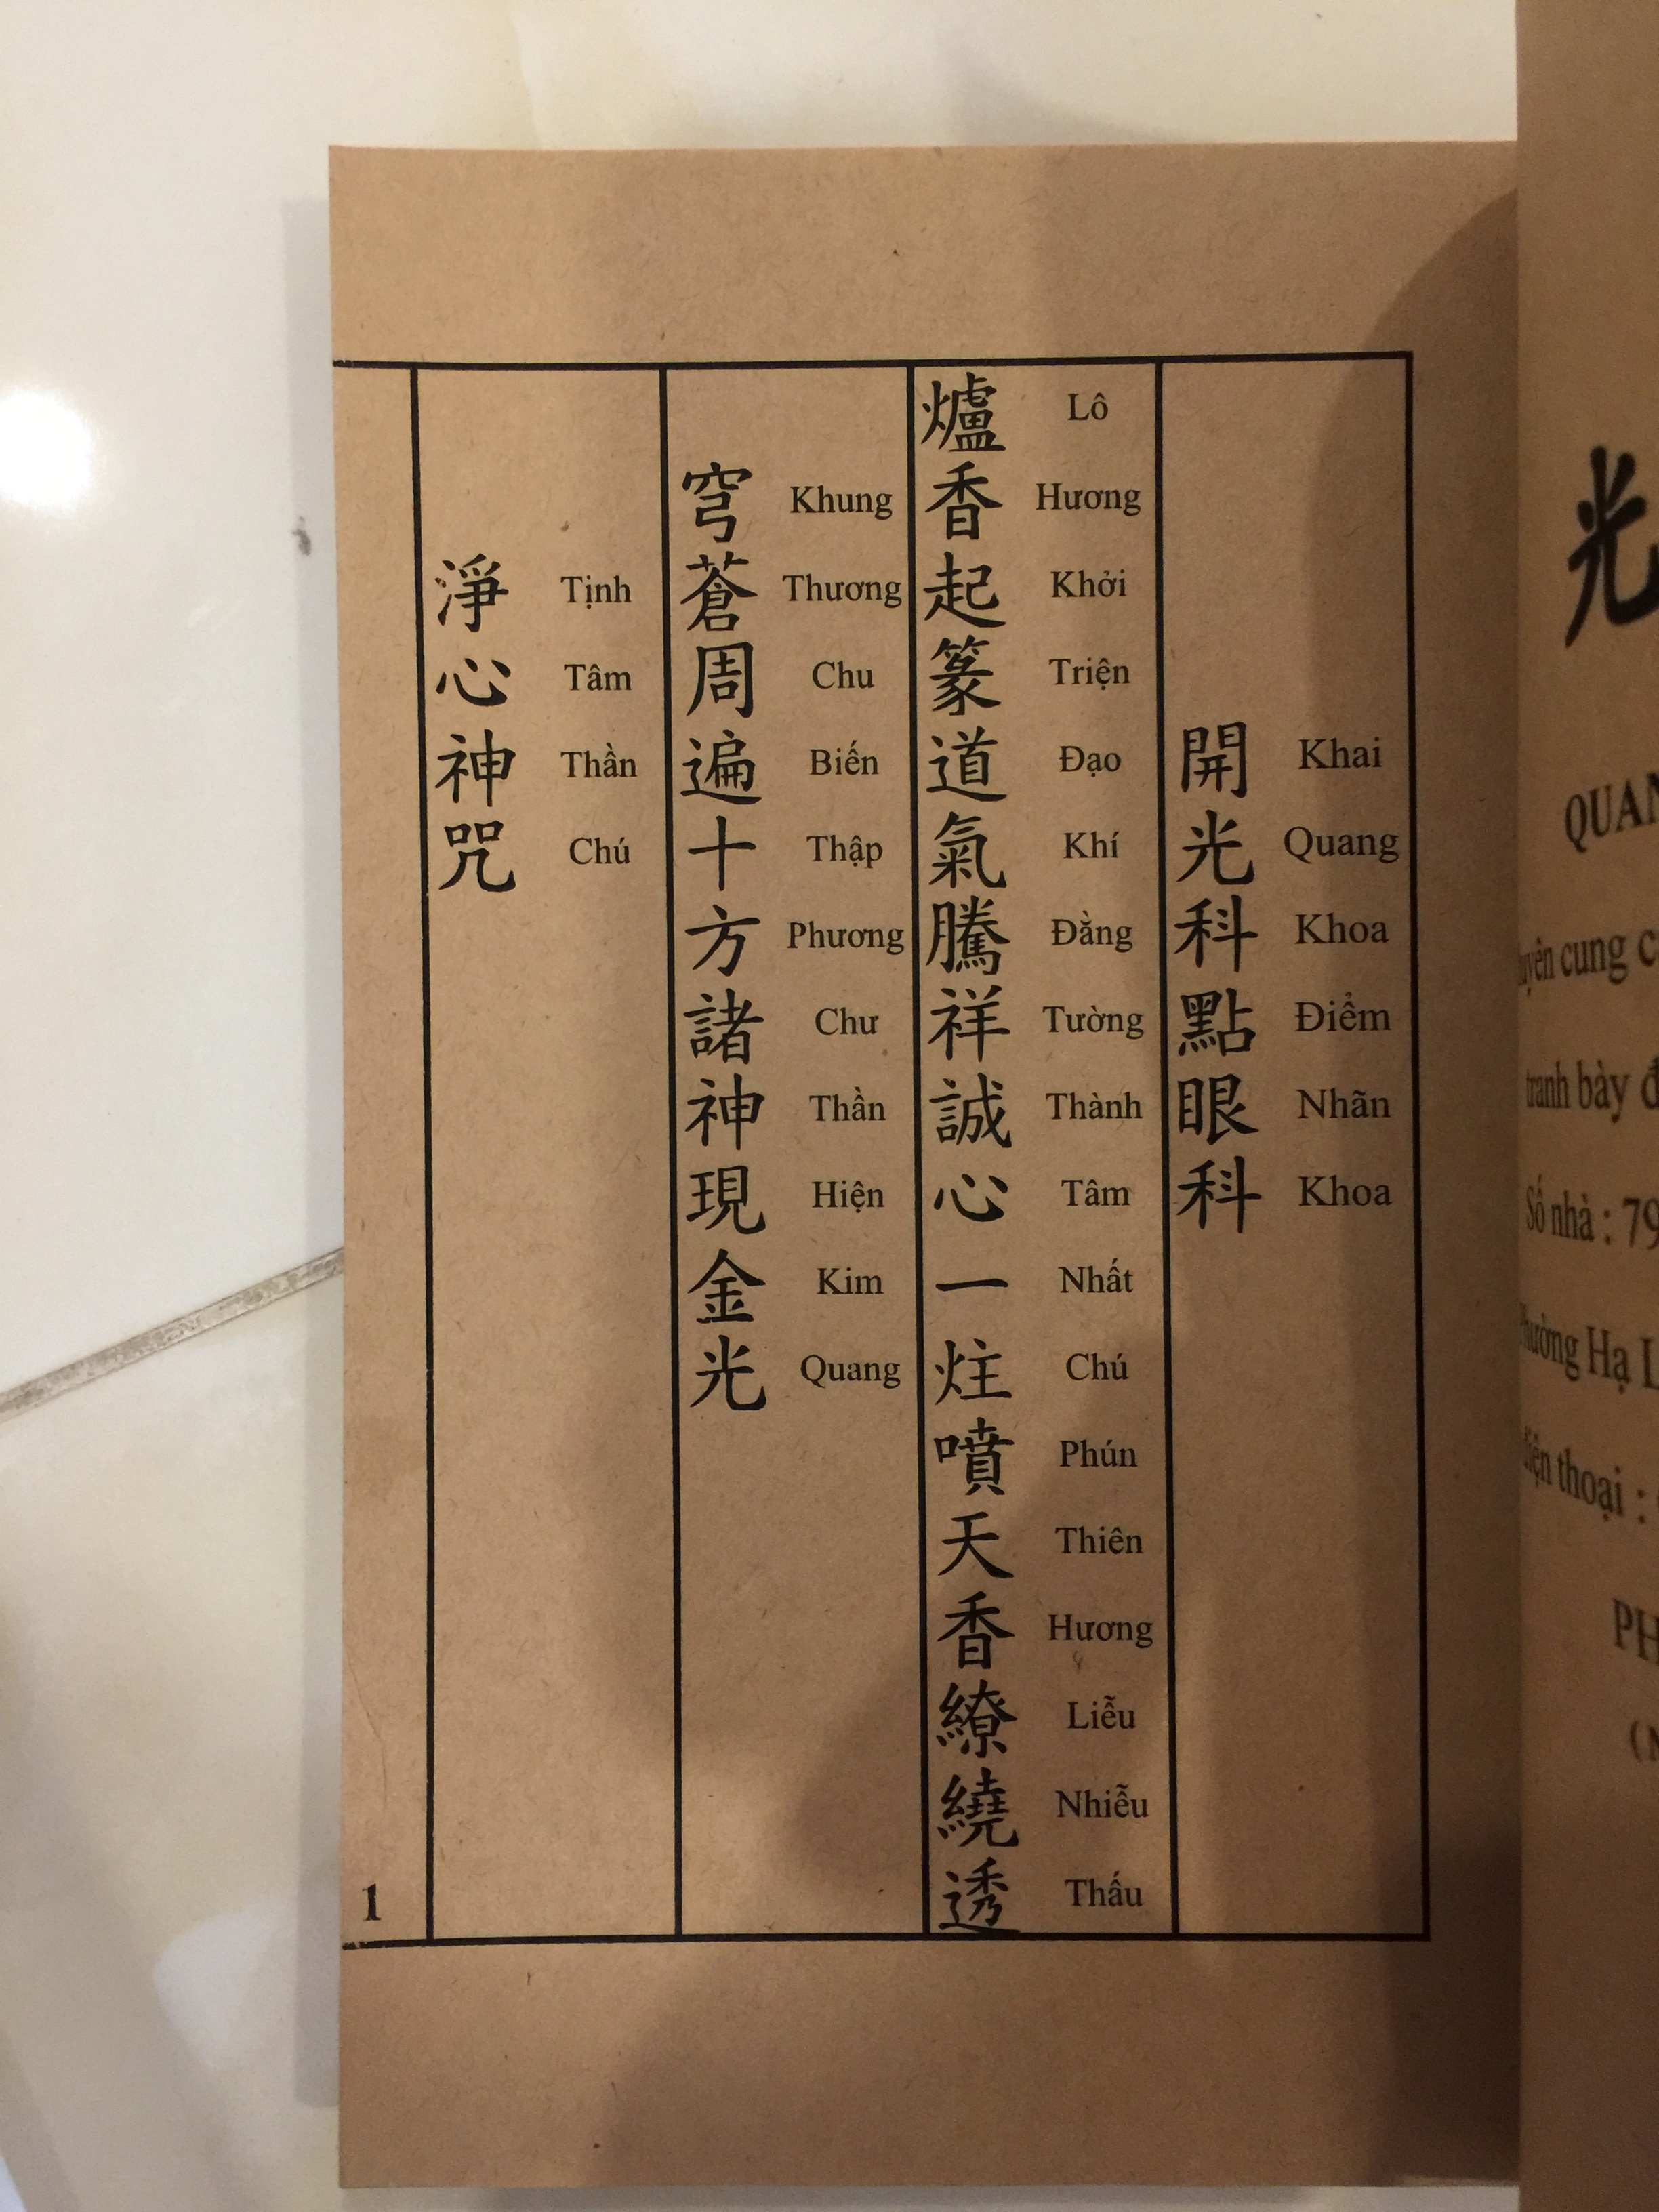 開光科點眼科
Khai Quang Khoa Điểm Nhãn Khoa
爐香起篆道氣騰祥誠心一炷噴天香繚繞透
Lô Hương Khởi Triện Đạo Khí Đằng Tường Thành Tâm Nhất Chú Phún Thiên Hương Liễu Nhiễu Thấu
穹蒼周遍十方諸神現金光
Khung Thương Chu Biến Thập Phương Chư Thần Hiện Kim Quang
淨心神咒
Tịnh Tâm Thần Chú
1
光
cung
tranh bày
Số nhà : 79
Hạ
thoại :